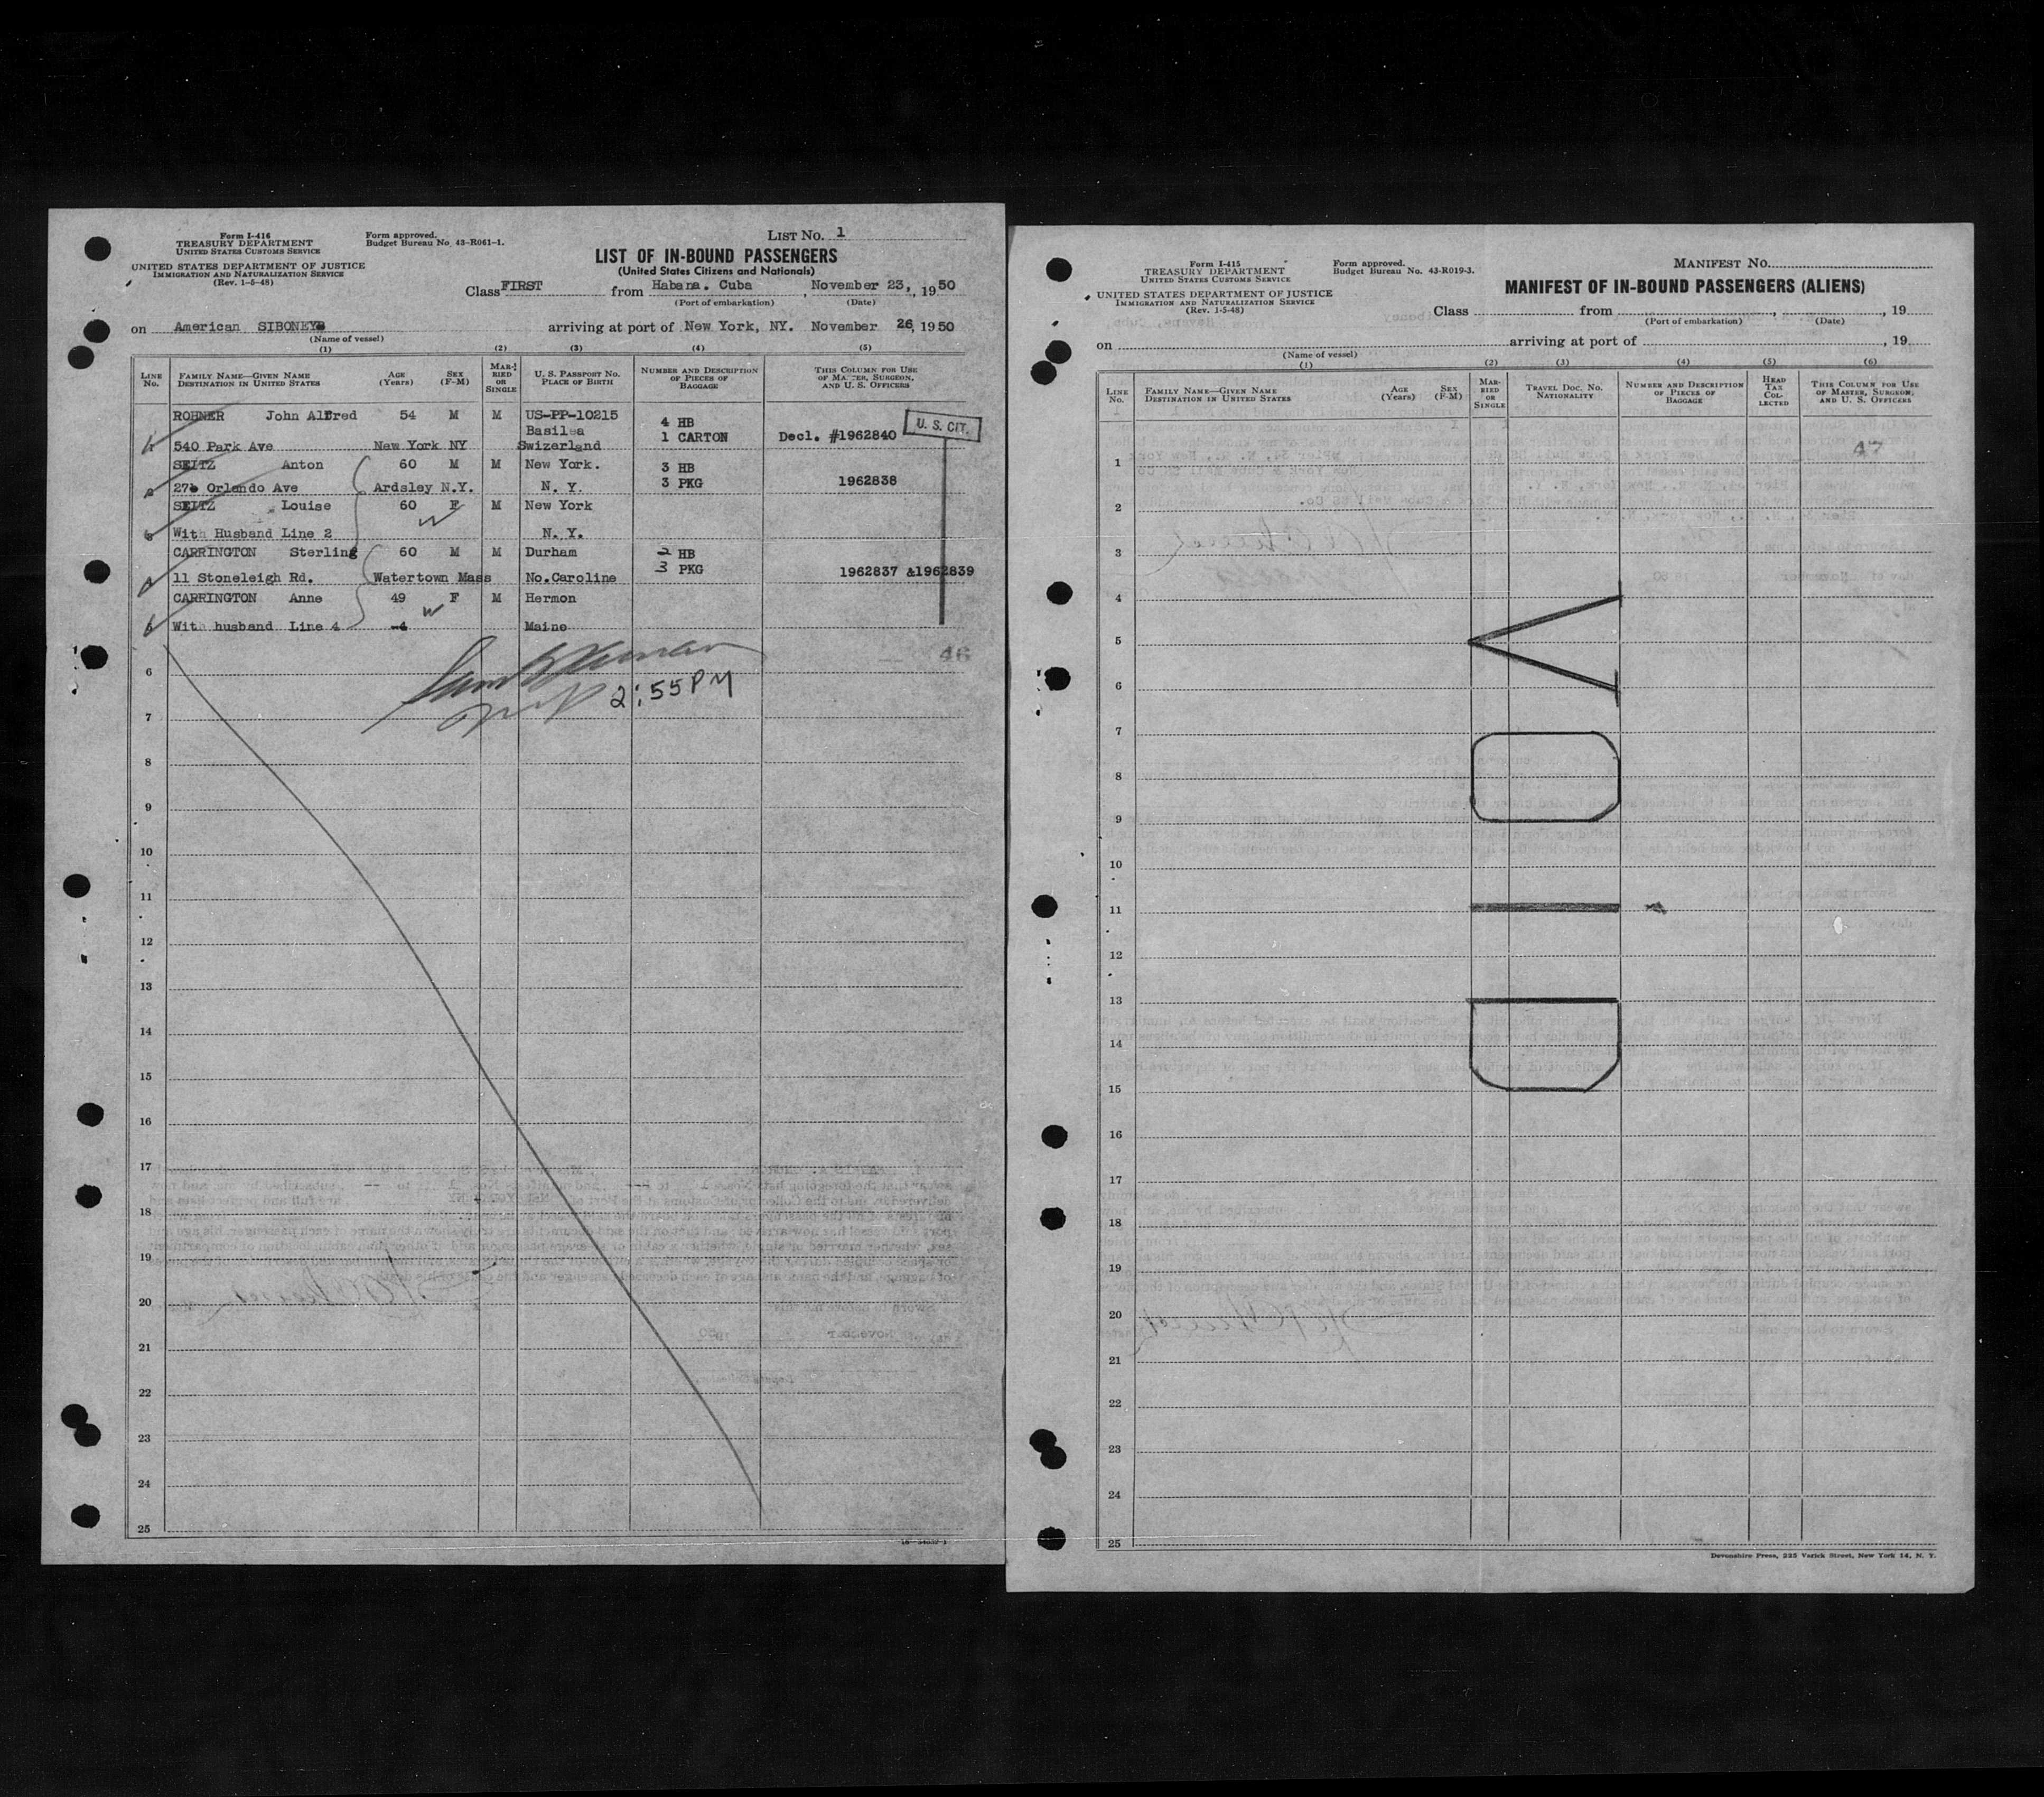 Form I-416
TREASURY DEPARTMENT
UNITED STATES CUSTOMS SERVICE
UNITED STATES DEPARTMENT OF JUSTICE
IMMIGRATION AND NATURALIZATION SERVICE
(Rev. 1-5-48)
Form approved.
Budget Bureau No. 43-R061-1.
LIST No. 1
LIST OF IN-BOUND PASSENGERS
(United States Citizens and Nationals)
Class FIRST from Habana. Cuba, November 23, 1950
(Port of embarkation) (Date)
on American SIBONEY arriving at port of New York, NY. November 26, 1950
(Name of vessel)
(1) (2) (3) (4) (5)
LINE No. FAMILY NAME—GIVEN NAME DESTINATION IN UNITED STATES AGE (Years) SEX (F-M) MARRIED OR SINGLE U. S. PASSPORT No. PLACE OF BIRTH NUMBER AND DESCRIPTION OF PIECES OF BAGGAGE THIS COLUMN FOR USE OF MASTER, SURGEON, AND U. S. OFFICERS
ROHNER John Alfred 54 M M US-PP-10215
Basilea 4 HB U. S. CIT.
1 540 Park Ave New York NY Swizerland 1 CARTON Decl. #1962840
SEITZ Anton 60 M M New York. 3 HB
2 Orlando Ave Ardsley N.Y. N. Y. 3 PKG 1962838
SEITZ Louise 60 F M New York
3 With Husband Line 2 N. Y.
CARRINGTON Sterling 60 M M Durham 2 HB
4 11 Stoneleigh Rd. Watertown Mass No.Caroline 3 PKG 1962837 &1962839
CARRINGTON Anne 49 F M Hermon
5 With husband Line 4 Maine
46
6
2:55PM
7
8
9
10
11
12
13
14
15
16
17
18
19
20
21
22
23
24
25
Form I-415
TREASURY DEPARTMENT
UNITED STATES CUSTOMS SERVICE
UNITED STATES DEPARTMENT OF JUSTICE
IMMIGRATION AND NATURALIZATION SERVICE
(Rev. 1-5-48)
Form approved.
Budget Bureau No. 43-R019-3.
MANIFEST No.
MANIFEST OF IN-BOUND PASSENGERS (ALIENS)
Class from , , 19
(Port of embarkation) (Date)
on arriving at port of , 19
(Name of vessel)
(1) (2) (3) (4) (5) (6)
LINE No. FAMILY NAME—GIVEN NAME DESTINATION IN UNITED STATES AGE (Years) SEX (F-M) MARRIED OR SINGLE TRAVEL DOC. No. NATIONALITY NUMBER AND DESCRIPTION OF PIECES OF BAGGAGE HEAD TAX COLLECTED THIS COLUMN FOR USE OF MASTER, SURGEON, AND U. S. OFFICERS
47
1
2
3
4
5
6
7
8
9
10
11
12
13
14
15
16
17
18
19
20
21
22
23
24
25
VOID
Devonshire Press, 225 Varick Street, New York 14, N. Y.